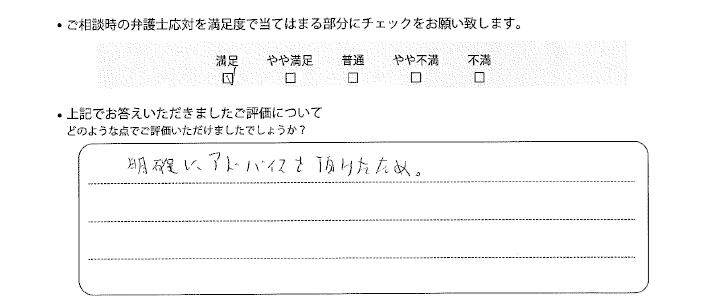 • ご相談時の弁護士応対を満足度で当てはまる部分にチェックをお願い致します。
満足 やや満足 普通 やや不満 不満
☑ □ □ □ □
• 上記でお答えいただきましたご評価について
どのような点でご評価いただけましたでしょうか？
明確に、アドバイスを頂けたため。